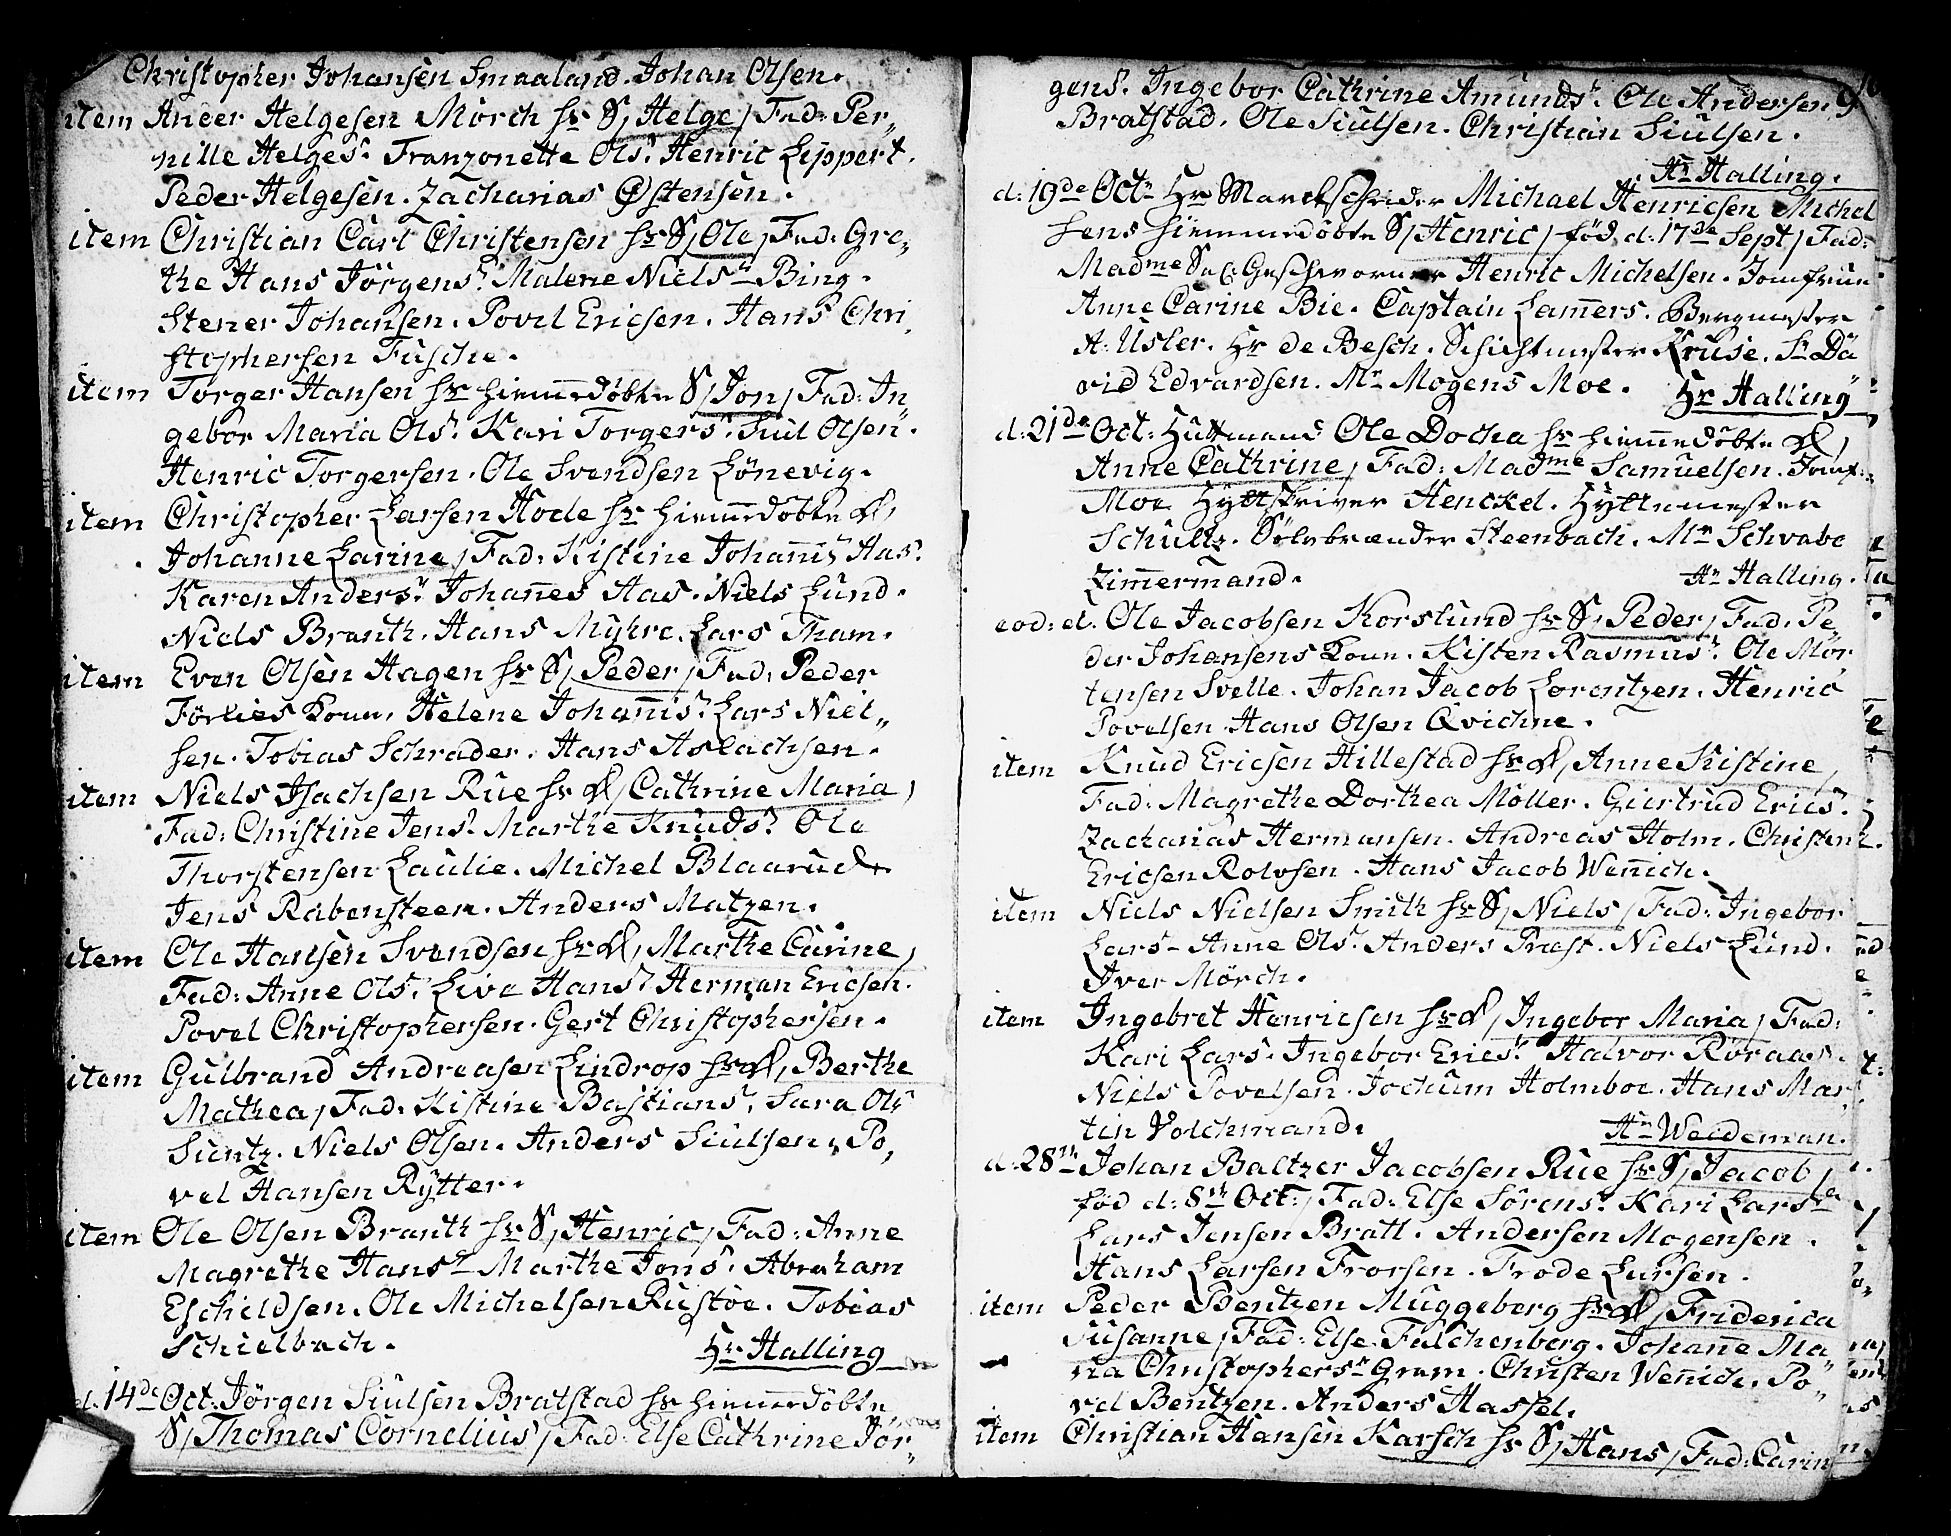 Christopher Johansen Smaaland. Johan Olsen.
item Aneer Helgesen Mörch hr S, Helge, Fad: Per„
nille Helgesr Franzonette Olsr Henric Lippert.
Peder Helgesen. Zacharias Østensen.
item Christian Carl Christensen hr S, Ole, Fad: Gre„
the Hans Jörgensr Malene Nielsr Bing.
Stener Johansen. Povel Ericsen. Hans Chri
stophersen Fusche.
item Torger Hansen hr hiemmedöbte S, Jon, Fad: In„
gebor Maria Olsr Kari Torgersr Siul Olsen.
Henric Torgersen. Ole Svendsen Lönevig.
item Christopher Larsen Hode hr hiemmedöbte D,
Johanne Larine, Fad: Kistine Johannisr Aas.
Karen Andersr Johannes Aas. Niels Lund.
Niels Branth. Hans Myhre. Lars Tham.
item Even Olsen Hagen hr S, Peder, Fad: Peder
Förlies Kone. Helene Johannisr Lars Niel„
sen. Tobias Schrader. Hans Aslachsen.
item Niels Isachsen Rue hr D, Cathrine Maria,
Fad: Christine Jensr Marthe Knudsr Ole
Thorstensen Laulie. Michel Blaarud.
Jens Rabensteen. Anders Matzen.
item Ole Hansen Svendsen hr D, Marthe Carine,
Fad: Anne Olsr Live Hansr Herman Ericsen.
Povel Christophersen. Gert Christophersen.
item Gulbrand Andreasen Lindrop hr D, Berthe
Mathea, Fad: Kistine Bastiansr Sara Olsr
Suntz. Niels Olsen. Anders Siulsen. Po„
vel Hansen Rytter.
item Ole Olsen Branth hr S, Henric, Fad: Anne
Magrethe Hansr Marthe Jonsr Abraham
Eschildsen. Ole Michelsen Rustöe. Tobias
Schielbach. Hr Halling
d. 14de Oct. Jörgen Siulsen Bratstad hr hiemmedöbte
S, Thomas Cornelius, Fad: Else Cathrine Jör„
gensr Ingebor Cathrine Amundsr Ole Andersen
Bratstad. Ole Siulsen. Christian Siulsen.
Hr Halling.
d: 19de Octr Hr Marckscheider Michael Henricsen Michel
sens hiemmedöbte S, Henric, fød d: 17de Sept, Fad:
Madme Sal: Geschworner Henric Michelsen. Jomfrue
Anne Carine Bie. Captain Lamers. Bergmester
A: Usler. Hr de Besch. Schichtmester Kruse. Sr Da
vid Edvardsen. Mr Mogens Moe. Hr Halling
d: 21de Oct: Hüttmand Ole Docha hr hiemmedöbte D,
Anne Cathrine, Fad: Madme Samuelsen. Jomf:
Moe. Hyttskriver Henckel. Hyttemester
Schultz. Sölvbrænder Steenbach. Mr Schvabe
Zimmermand. Hr Halling.
eod: d. Ole Jacobsen Korslund hr S, Peder, Fad: Pe„
der Johansens Kone. Kisten Rasmusr Ole Mor
tensen Svelle. Johan Jacob Lorentzen. Henric
Povelsen. Hans Olsen Qvichne.
item Knud Ericsen Hillestad hr D, Anne Kistine,
Fad: Magrethe Dorthea Möller. Giertrud Ericsr
Zacharias Hermansen. Andreas Holm. Christen
Ericsen Rolvsen. Hans Jacob Wennich.
item Niels Nielsen Smith hr S, Niels, Fad: Ingebor
Larsr Anne Olsr Anders Præst. Niels Lund.
Iver Mörch.
item Ingebret Henricsen hr D, Ingebor Maria, Fad:
Kari Larsr Ingebor Ericsr Halvor Röraas.
Niels Povelsen. Jochum Holmboe. Hans Mar
tin Volchmand. Hr Weideman.
d. 28de Johan Baltzer Jacobsen Rue hr S, Jacob,
fød d: 8de Oct:, Fad: Else Sörensr Kari Larsr
Lars Jensen Bratt. Andersen Mogensen.
Hans Larsen Frorsen. Frode Larsen.
item Peder Bentzen Muggeberg hr D, Friderica
Susanne, Fad: Else Falchenberg. Johanne Ma„
ria Christophersr Gram. Christen Wennich. Po„
vel Bentzen. Anders Hassel.
item Christian Hansen Karsch hr S, Hans, Fad: Carin